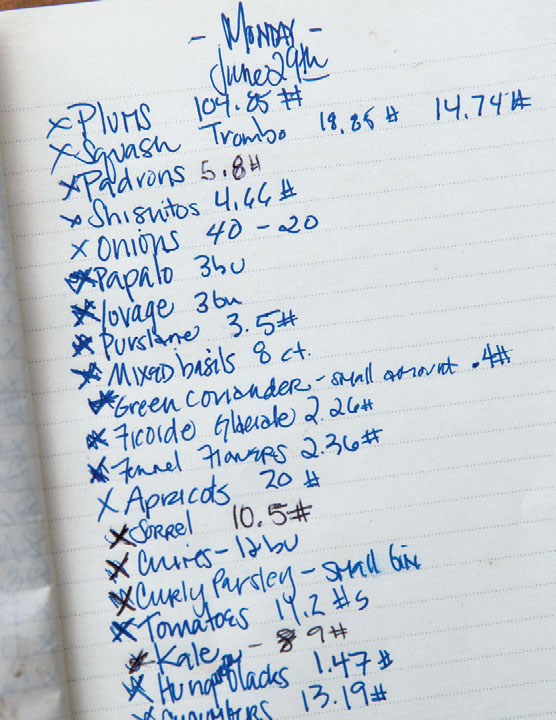 - Monday -
June 29th
x Plums 104.85 #
x Squash Trombo 18.85 # 14.74 #
x Padrons 5.8 #
x Shishitos 4.66 #
x Onions 40 - 20
x Papalo 3bu
x lovage 3bu
x Purslane 3.5 #
x Mixed basils 8 ct.
x Green Coriander - small amount .4 #
x Ficoide Glaciale 2.26 #
x Fennel Flowers 2.36 #
x Apricots 20 #
x Sorrel 10.5 #
x - 12bu
x Curly Parsley - small bin
x Tomatoes 14.2 #s
x Kale - 9 #
x Hungarian blacks 1.47 #
x Cucumbers 13.19 #